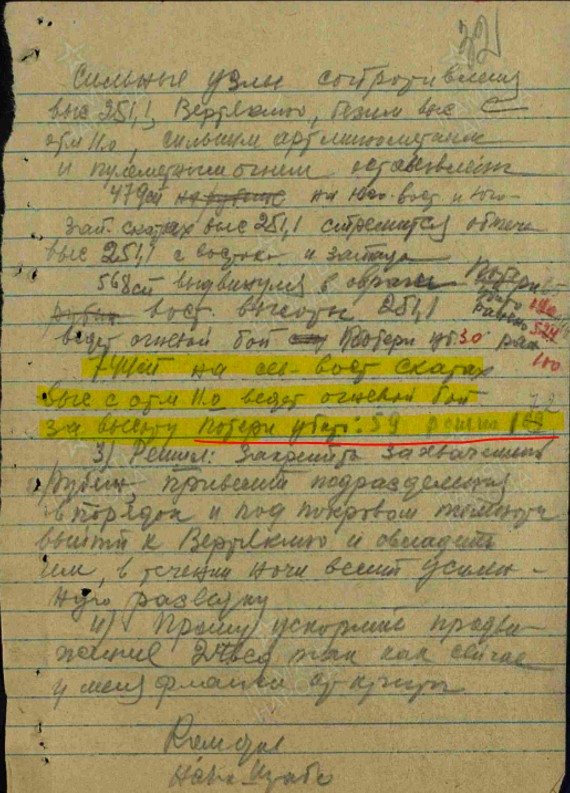 32
Сильные узлы сопротивления
выс 251,1, Вертячию, безим выс
отм 11.0, сильным артминометным
и пулеметным огнем
479сп на рубеже на юго-вост и юго-
зап. скатах выс 251,1 стремится обойти
выс 251,1 с востока и запада
568сп выдвинулся в овраг Потери
рубеж вост. высоты 251,1 ранено 524
ведет огневой бой Потери уб. 30 ран
100
744сп на сев-вост скатах
выс с отм 11.0 ведет огневой бой 72
за высоту Потери убито: 59 ранено
3) Решил: Закрепить захваченный
рубеж, привести подразделения
в порядок и под покровом темноты
выйти к и овладеть
им, в течении ночи вести усилен-
ную разведку
4) Прошу ускорить продви-
жение так как сейчас
у меня фланги открыты
Комдив
Нач.